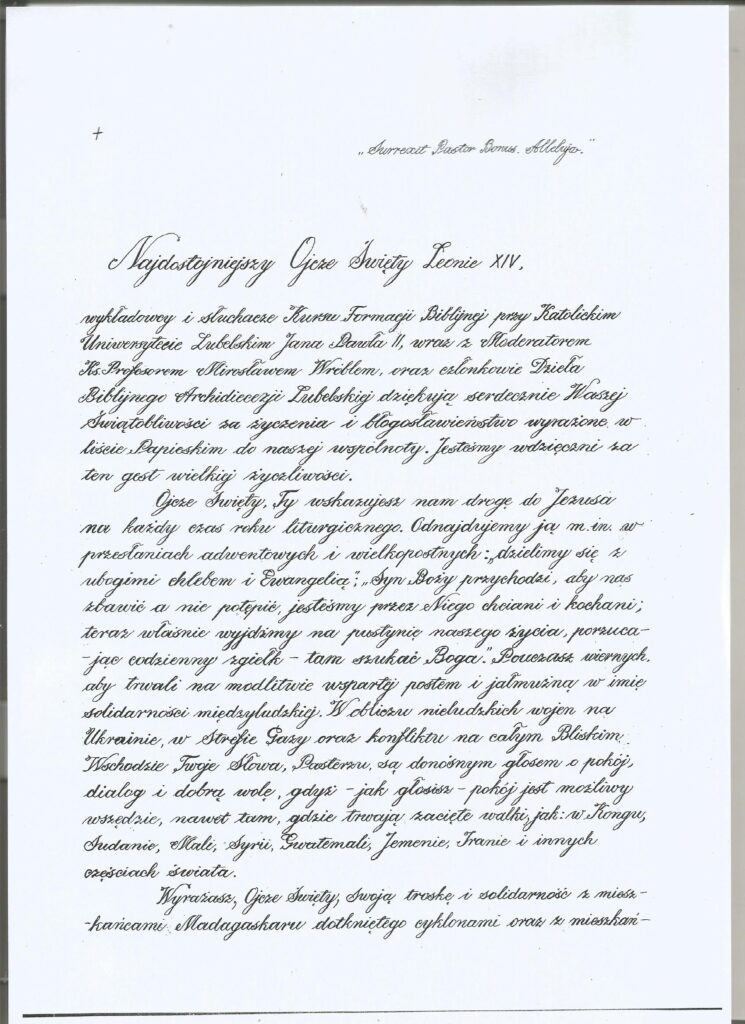 +
„Surrexit Pastor Bonus. Alleluja."
Najdostojniejszy Ojcze Święty Leonie XIV,
wykładowcy i słuchacze Kursu Formacji Biblijnej przy Katolickim
Uniwersytecie Lubelskim Jana Pawła II, wraz z Moderatorem
Ks. Profesorem Mirosławem Wróblem, oraz członkowie Dzieła
Biblijnego Archidiecezji Lubelskiej dziękują serdecznie Waszej
Świątobliwości za życzenia i błogosławieństwo wyrażone w
liście Papieskim do naszej wspólnoty. Jesteśmy wdzięczni za
ten gest wielkiej życzliwości.
Ojcze Święty, Ty wskazujesz nam drogę do Jezusa
na każdy czas roku liturgicznego. Odnajdujemy ją m.in. w
przesłaniach adwentowych i wielkopostnych: „dzielimy się z
ubogimi chlebem i Ewangelią"; „Syn Boży przychodzi, aby nas
zbawić a nie potępić, jesteśmy przez Niego chciani i kochani;
teraz właśnie wyjdźmy na pustynię naszego życia, porzuca-
-jąc codzienny zgiełk - tam szukać Boga". Pouczasz wiernych,
aby trwali na modlitwie wspartej postem i jałmużną w imię
solidarności międzyludzkiej. W obliczu nieludzkich wojen na
Ukrainie, w Strefie Gazy oraz konfliktu na całym Bliskim
Wschodzie Twoje Słowa, Pasterzu, są donośnym głosem o pokój,
dialog i dobrą wolę, gdyż - jak głosisz - pokój jest możliwy
wszędzie, nawet tam, gdzie trwają zacięte walki, jak: w Kongu,
Sudanie, Mali, Syrii, Gwatemali, Jemenie, Iranie i innych
częściach świata.
Wyrażasz, Ojcze Święty, swoją troskę i solidarność z miesz-
-kańcami Madagaskaru dotkniętego cyklonami oraz z mieszkań-